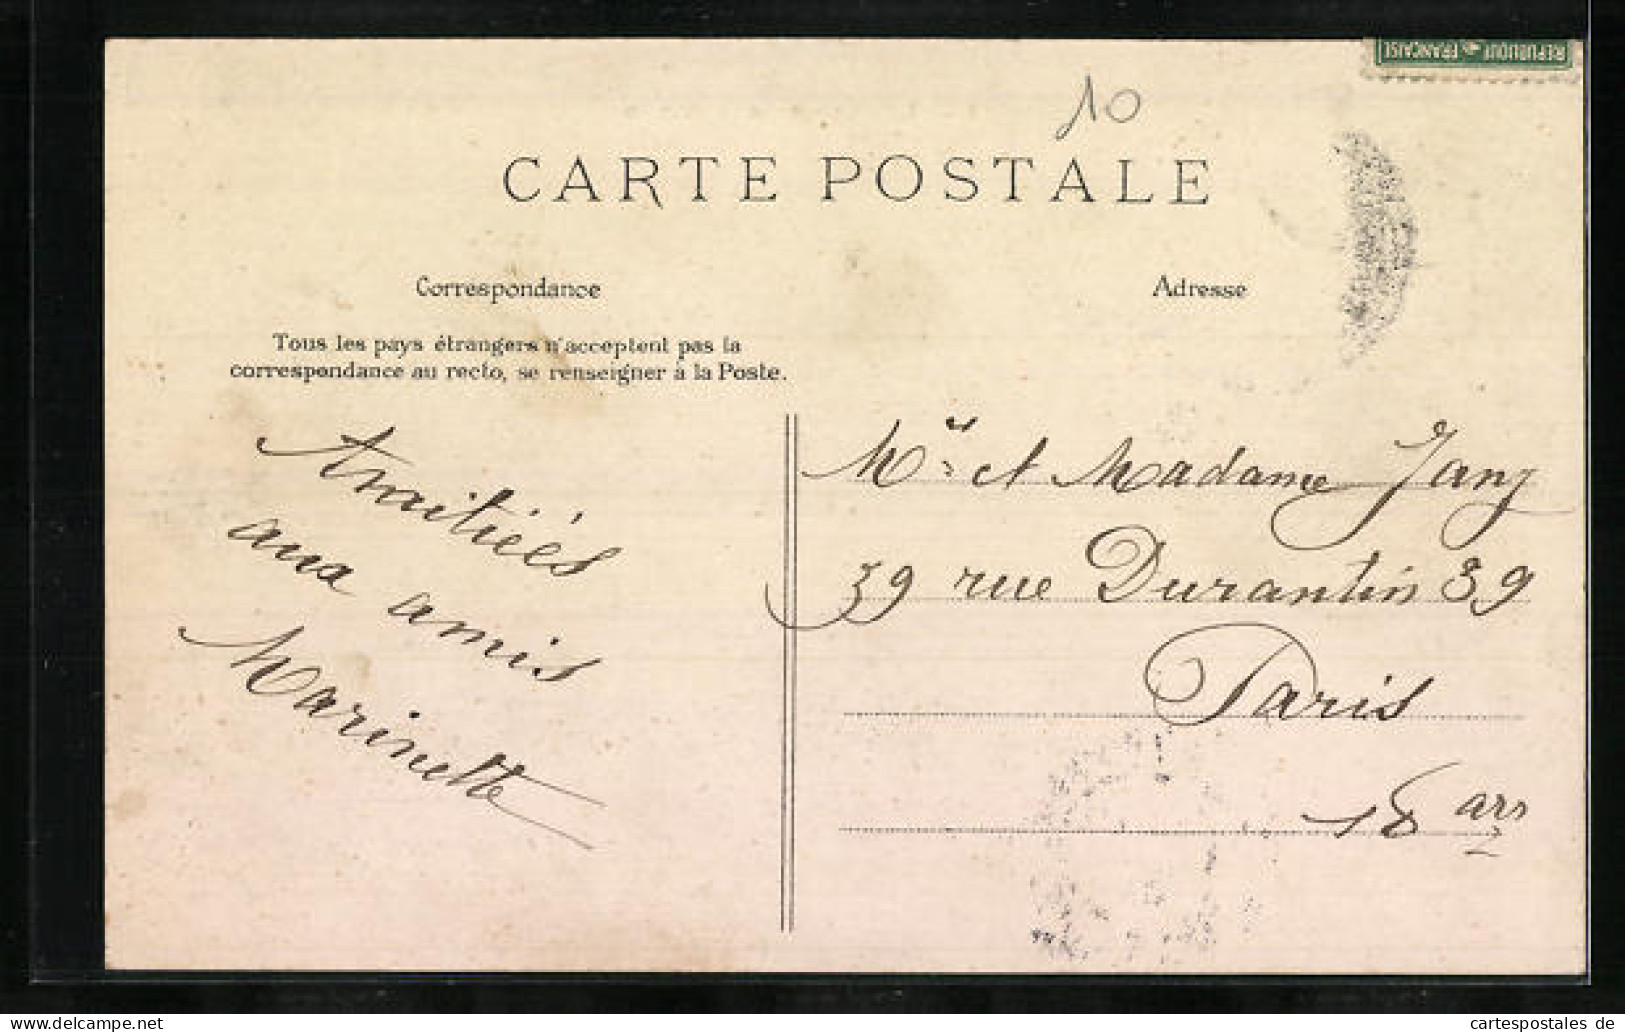 REPUBLIQUE FRANÇAISE
10
CARTE POSTALE
Correspondance
Adresse
Tous les pays étrangers n'acceptent pas la
correspondance au recto, se renseigner à la Poste.
Amitiéés
aux amis
Marinette
Mr et Madame Jany
39 rue Durantin 39
Paris
18 arr
cartespostales de